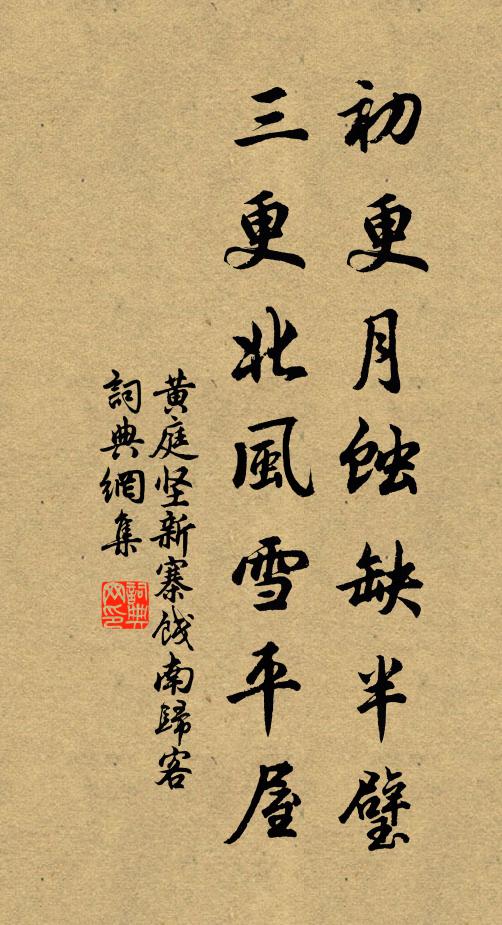 初更月蚀缺半璧
三更北風雪平屋
黄庭坚新寨饯南歸客
詞典網集
詞典网印